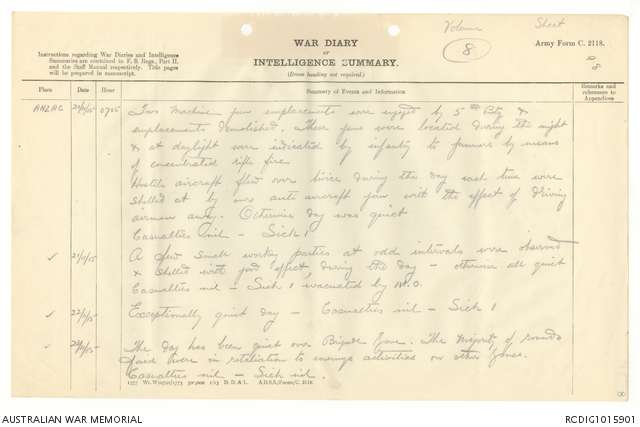 Volume Sheet
8
WAR DIARY
or
INTELLIGENCE SUMMARY.
(Erase heading not required.)
Army Form C. 2118.
8
Instructions regarding War Diaries and Intelligence
Summaries are contained in F. S. Regs., Part II.
and the Staff Manual respectively. Title pages
will be prepared in manuscript.
Place Date Hour Summary of Events and Information Remarks and references to Appendices
ANZAC 20/11/15 0705 Two machine gun emplacements were engaged by 5th Bty &
emplacements demolished. These guns were located during the night
& at daylight were indicated by infantry to gunners by means
of concentrated rifle fire.
Hostile aircraft flew over twice during the day each time were
shelled at by our anti aircraft gun with the effect of driving
airman away. Otherwise day was quiet
Casualties nil - Sick 1
21/11/15 A few small working parties at odd intervals were observed
& shelled with good effect, during the day - otherwise all quiet
Casualties nil - Sick 1, evacuated by M.O.
22/11/15 Exceptionally quiet day - Casualties nil - Sick 1
The day has been quiet over Brigade Zone. The majority of rounds
fired were in retaliation to enemys activities on other Zones.
Casualties nil - Sick nil.
D. D. & L. A.D.S.S./Forms/C. 2118.
AUSTRALIAN WAR MEMORIAL
RCDIG1015901